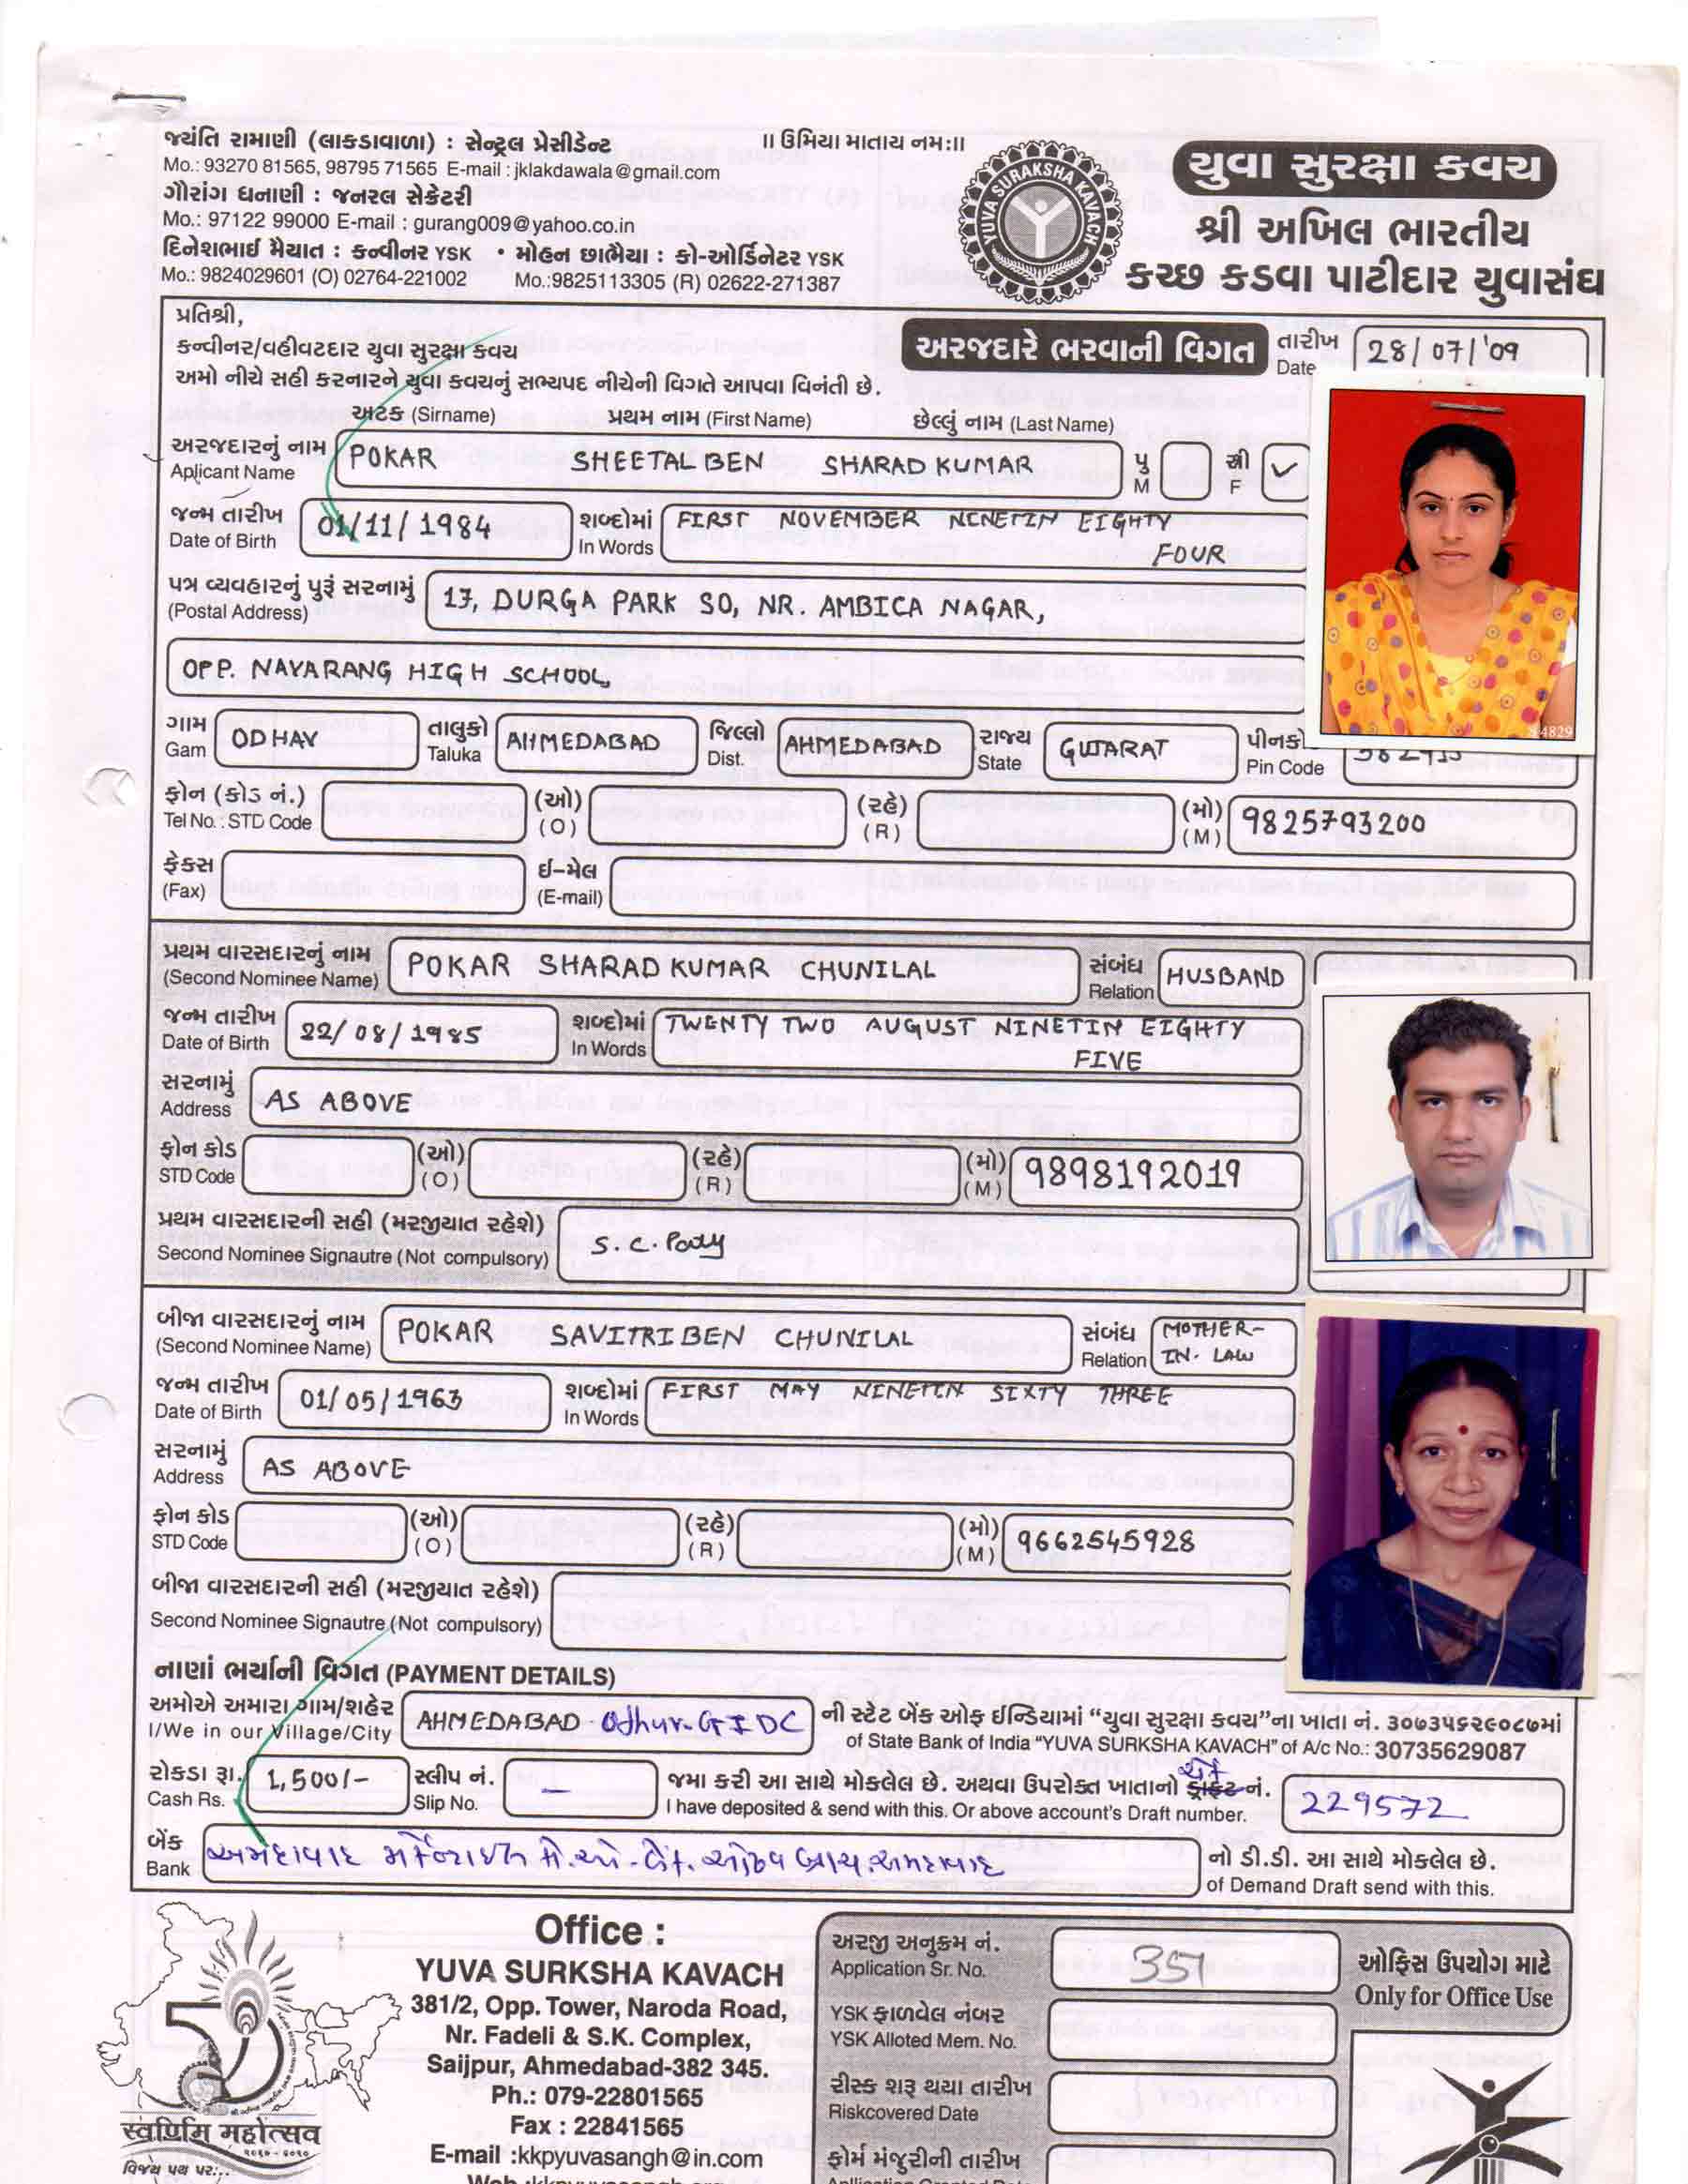 જયંતિ રામાણી (લાકડાવાળા) : સેન્ટ્રલ પ્રેસીડેન્ટ
Mo.: 93270 81565, 98795 71565 E-mail : jklakdawala@gmail.com
ગૌરાંગ ધનાણી : જનરલ સેક્રેટરી
Mo.: 97122 99000 E-mail : gurang009@yahoo.co.in
દિનેશભાઈ મૈયાત : કન્વીનર YSK • મોહન છાભૈયા : કો-ઓર્ડિનેટર YSK
Mo.: 9824029601 (O) 02764-221002 Mo.:9825113305 (R) 02622-271387
॥ ઉમિયા માતાય નમ:॥
YUVA SURAKSHA KAVACH
યુવા સુરક્ષા કવચ
શ્રી અખિલ ભારતીય
કચ્છ કડવા પાટીદાર યુવાસંઘ
પ્રતિશ્રી,
કન્વીનર/વહીવટદાર યુવા સુરક્ષા કવચ
અરજદારે ભરવાની વિગત તારીખ Date 28/07/'09
અમો નીચે સહી કરનારને યુવા કવચનું સભ્યપદ નીચેની વિગતે આપવા વિનંતી છે.
અટક (Sirname) પ્રથમ નામ (First Name) છેલ્લું નામ (Last Name)
અરજદારનું નામ Aplicant Name POKAR SHEETALBEN SHARADKUMAR પુ M સ્રી F ✓
જન્મ તારીખ Date of Birth 01/11/1984 શબ્દોમાં In Words FIRST NOVEMBER NINETIN EIGHTY
FOUR
પત્ર વ્યવહારનું પુરૂં સરનામું (Postal Address) 17, DURGA PARK SO, NR. AMBICA NAGAR,
OPP. NAVARANG HIGH SCHOOL,
4829
ગામ Gam ODHAV તાલુકો Taluka AHMEDABAD જિલ્લો Dist. AHMEDABAD રાજ્ય State GUJARAT પીનકો Pin Code
ફોન (કોડ નં.) Tel No. : STD Code (ઓ) (O) (રહે) (R) (મો) (M) 9825793200
ફેક્સ (Fax) ઈ-મેલ (E-mail)
પ્રથમ વારસદારનું નામ (Second Nominee Name) POKAR SHARADKUMAR CHUNILAL સંબંધ Relation HUSBAND
જન્મ તારીખ Date of Birth 22/08/1985 શબ્દોમાં In Words TWENTY TWO AUGUST NINETIN EIGHTY
FIVE
સરનામું Address AS ABOVE
ફોન કોડ STD Code (ઓ) (O) (રહે) (R) (મો) (M) 9898192019
પ્રથમ વારસદારની સહી (મરજીયાત રહેશે)
Second Nominee Signautre (Not compulsory) S. C.
બીજા વારસદારનું નામ (Second Nominee Name) POKAR SAVITRIBEN CHUNILAL સંબંધ Relation MOTHER-
IN-LAW
જન્મ તારીખ Date of Birth 01/05/1963 શબ્દોમાં In Words FIRST MAY NINETIN SIXTY THREE
સરનામું Address AS ABOVE
ફોન કોડ STD Code (ઓ) (O) (રહે) (R) (મો) (M) 9662545928
બીજા વારસદારની સહી (મરજીયાત રહેશે)
Second Nominee Signautre (Not compulsory)
નાણાં ભર્યાની વિગત (PAYMENT DETAILS)
અમોએ અમારા ગામ/શહેર I/We in our Village/City AHMEDABAD GIDC ની સ્ટેટ બેંક ઓફ ઈન્ડિયામાં “યુવા સુરક્ષા કવચ”ના ખાતા નં. ૩૦૭૩૫૬૨૯૦૮૭માં
of State Bank of India “YUVA SURKSHA KAVACH” of A/c No.: 30735629087
રોકડા રૂા. Cash Rs. 1,500/- સ્લીપ નં. Slip No. — જમા કરી આ સાથે મોકલેલ છે. અથવા ઉપરોક્ત ખાતાનો ચેક ડ્રાફ્ટ નં. 229572
I have deposited & send with this. Or above account's Draft number.
બેંક Bank અમદાવાદ મર્કેન્ટાઈલ કો.ઓ. બેંક. ઓઢવ બ્રાંચ અમદાવાદ નો ડી.ડી. આ સાથે મોકલેલ છે.
of Demand Draft send with this.
સ્વર્ણિમ મહોત્સવ
વિજય પથ પર...
Office :
YUVA SURKSHA KAVACH
381/2, Opp. Tower, Naroda Road,
Nr. Fadeli & S.K. Complex,
Saijpur, Ahmedabad-382 345.
Ph.: 079-22801565
Fax : 22841565
E-mail :kkpyuvasangh@in.com
અરજી અનુક્રમ નં. Application Sr. No. 351
ઓફિસ ઉપયોગ માટે
Only for Office Use
YSK ફાળવેલ નંબર
YSK Alloted Mem. No.
રીસ્ક શરૂ થયા તારીખ
Riskcovered Date
ફોર્મ મંજુરીની તારીખ